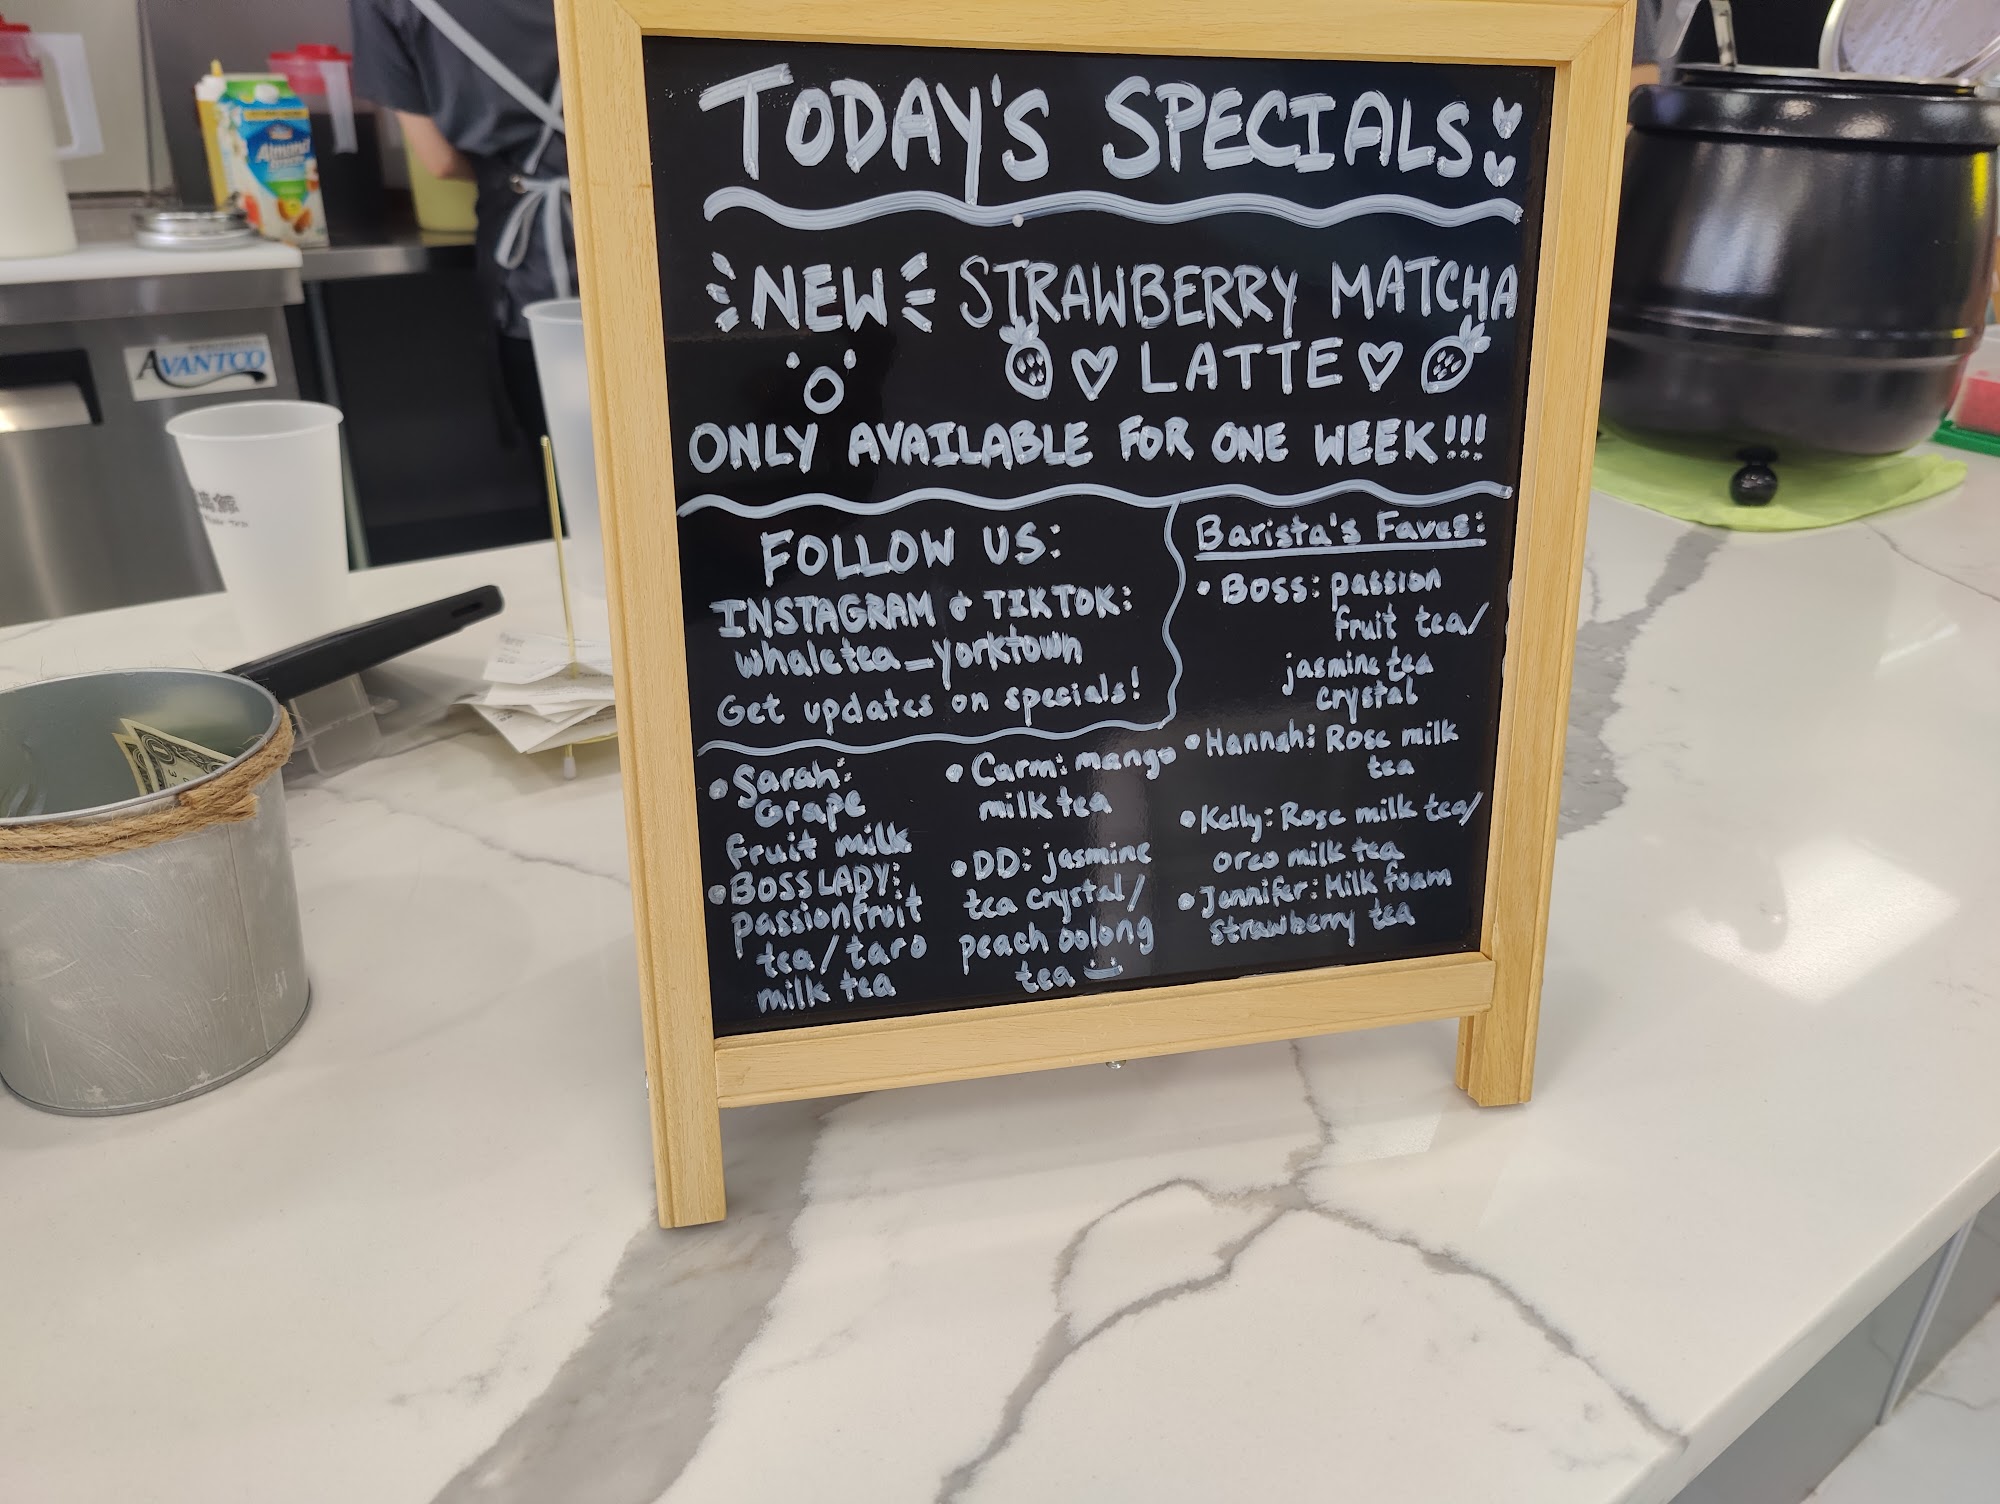 TODAY'S SPECIALS
NEW STRAWBERRY MATCHA
LATTE
ONLY AVAILABLE FOR ONE WEEK!!!
FOLLOW US:
INSTAGRAM & TIKTOK:
whaletea_yorktown
Get updates on specials!
Barista's Faves:
• Boss: passion
fruit tea/
jasmine tea
crystal
• Hannah: Rose milk
tea
• Kelly: Rose milk tea/
oreo milk tea
• Jennifer: Milk foam
strawberry tea
• Sarah:
Grape
fruit milk
• BOSS LADY:
passionfruit
tea/taro
milk tea
• Carm: mango
milk tea
• DD: jasmine
tea crystal/
peach oolong
tea
Almond
AVANTCO